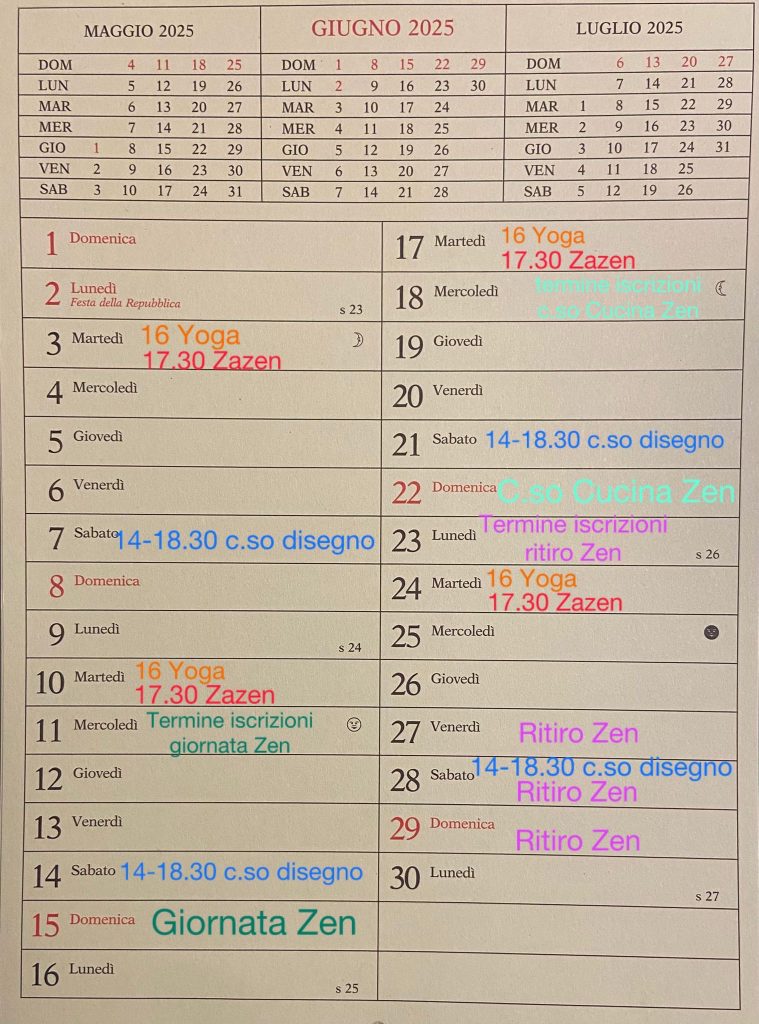 MAGGIO 2025
DOM 4 11 18 25
LUN 5 12 19 26
MAR 6 13 20 27
MER 7 14 21 28
GIO 1 8 15 22 29
VEN 2 9 16 23 30
SAB 3 10 17 24 31
GIUGNO 2025
DOM 1 8 15 22 29
LUN 2 9 16 23 30
MAR 3 10 17 24
MER 4 11 18 25
GIO 5 12 19 26
VEN 6 13 20 27
SAB 7 14 21 28
LUGLIO 2025
DOM 6 13 20 27
LUN 7 14 21 28
MAR 1 8 15 22 29
MER 2 9 16 23 30
GIO 3 10 17 24 31
VEN 4 11 18 25
SAB 5 12 19 26
1 Domenica
2 Lunedì
Festa della Repubblica
s 23
3 Martedì 16 Yoga
17.30 Zazen
4 Mercoledì
5 Giovedì
6 Venerdì
7 Sabato 14-18.30 c.so disegno
8 Domenica
9 Lunedì
s 24
10 Martedì 16 Yoga
17.30 Zazen
11 Mercoledì Termine iscrizioni
giornata Zen
12 Giovedì
13 Venerdì
14 Sabato 14-18.30 c.so disegno
15 Domenica Giornata Zen
16 Lunedì
s 25
17 Martedì 16 Yoga
17.30 Zazen
18 Mercoledì termine iscrizioni
c.so Cucina Zen
19 Giovedì
20 Venerdì
21 Sabato 14-18.30 c.so disegno
22 Domenica C.so Cucina Zen
23 Lunedì Termine iscrizioni
ritiro Zen
s 26
24 Martedì 16 Yoga
17.30 Zazen
25 Mercoledì
26 Giovedì
27 Venerdì Ritiro Zen
28 Sabato 14-18.30 c.so disegno
Ritiro Zen
29 Domenica Ritiro Zen
30 Lunedì
s 27